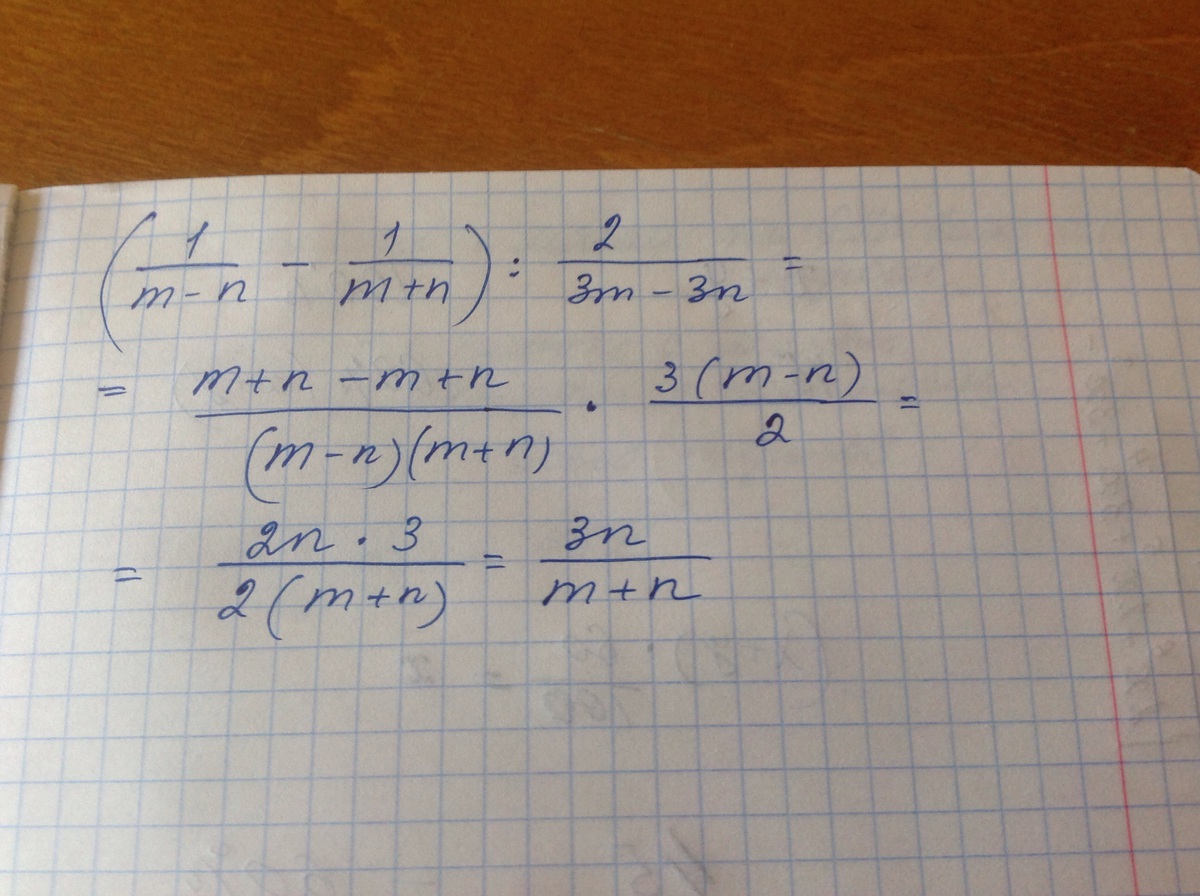 (1/(m-n) - 1/(m+n)) : 2/(3m-3n) =
= (m+n-m+n)/((m-n)(m+n)) · 3(m-n)/2 =
= (2n·3)/(2(m+n)) = 3n/(m+n)